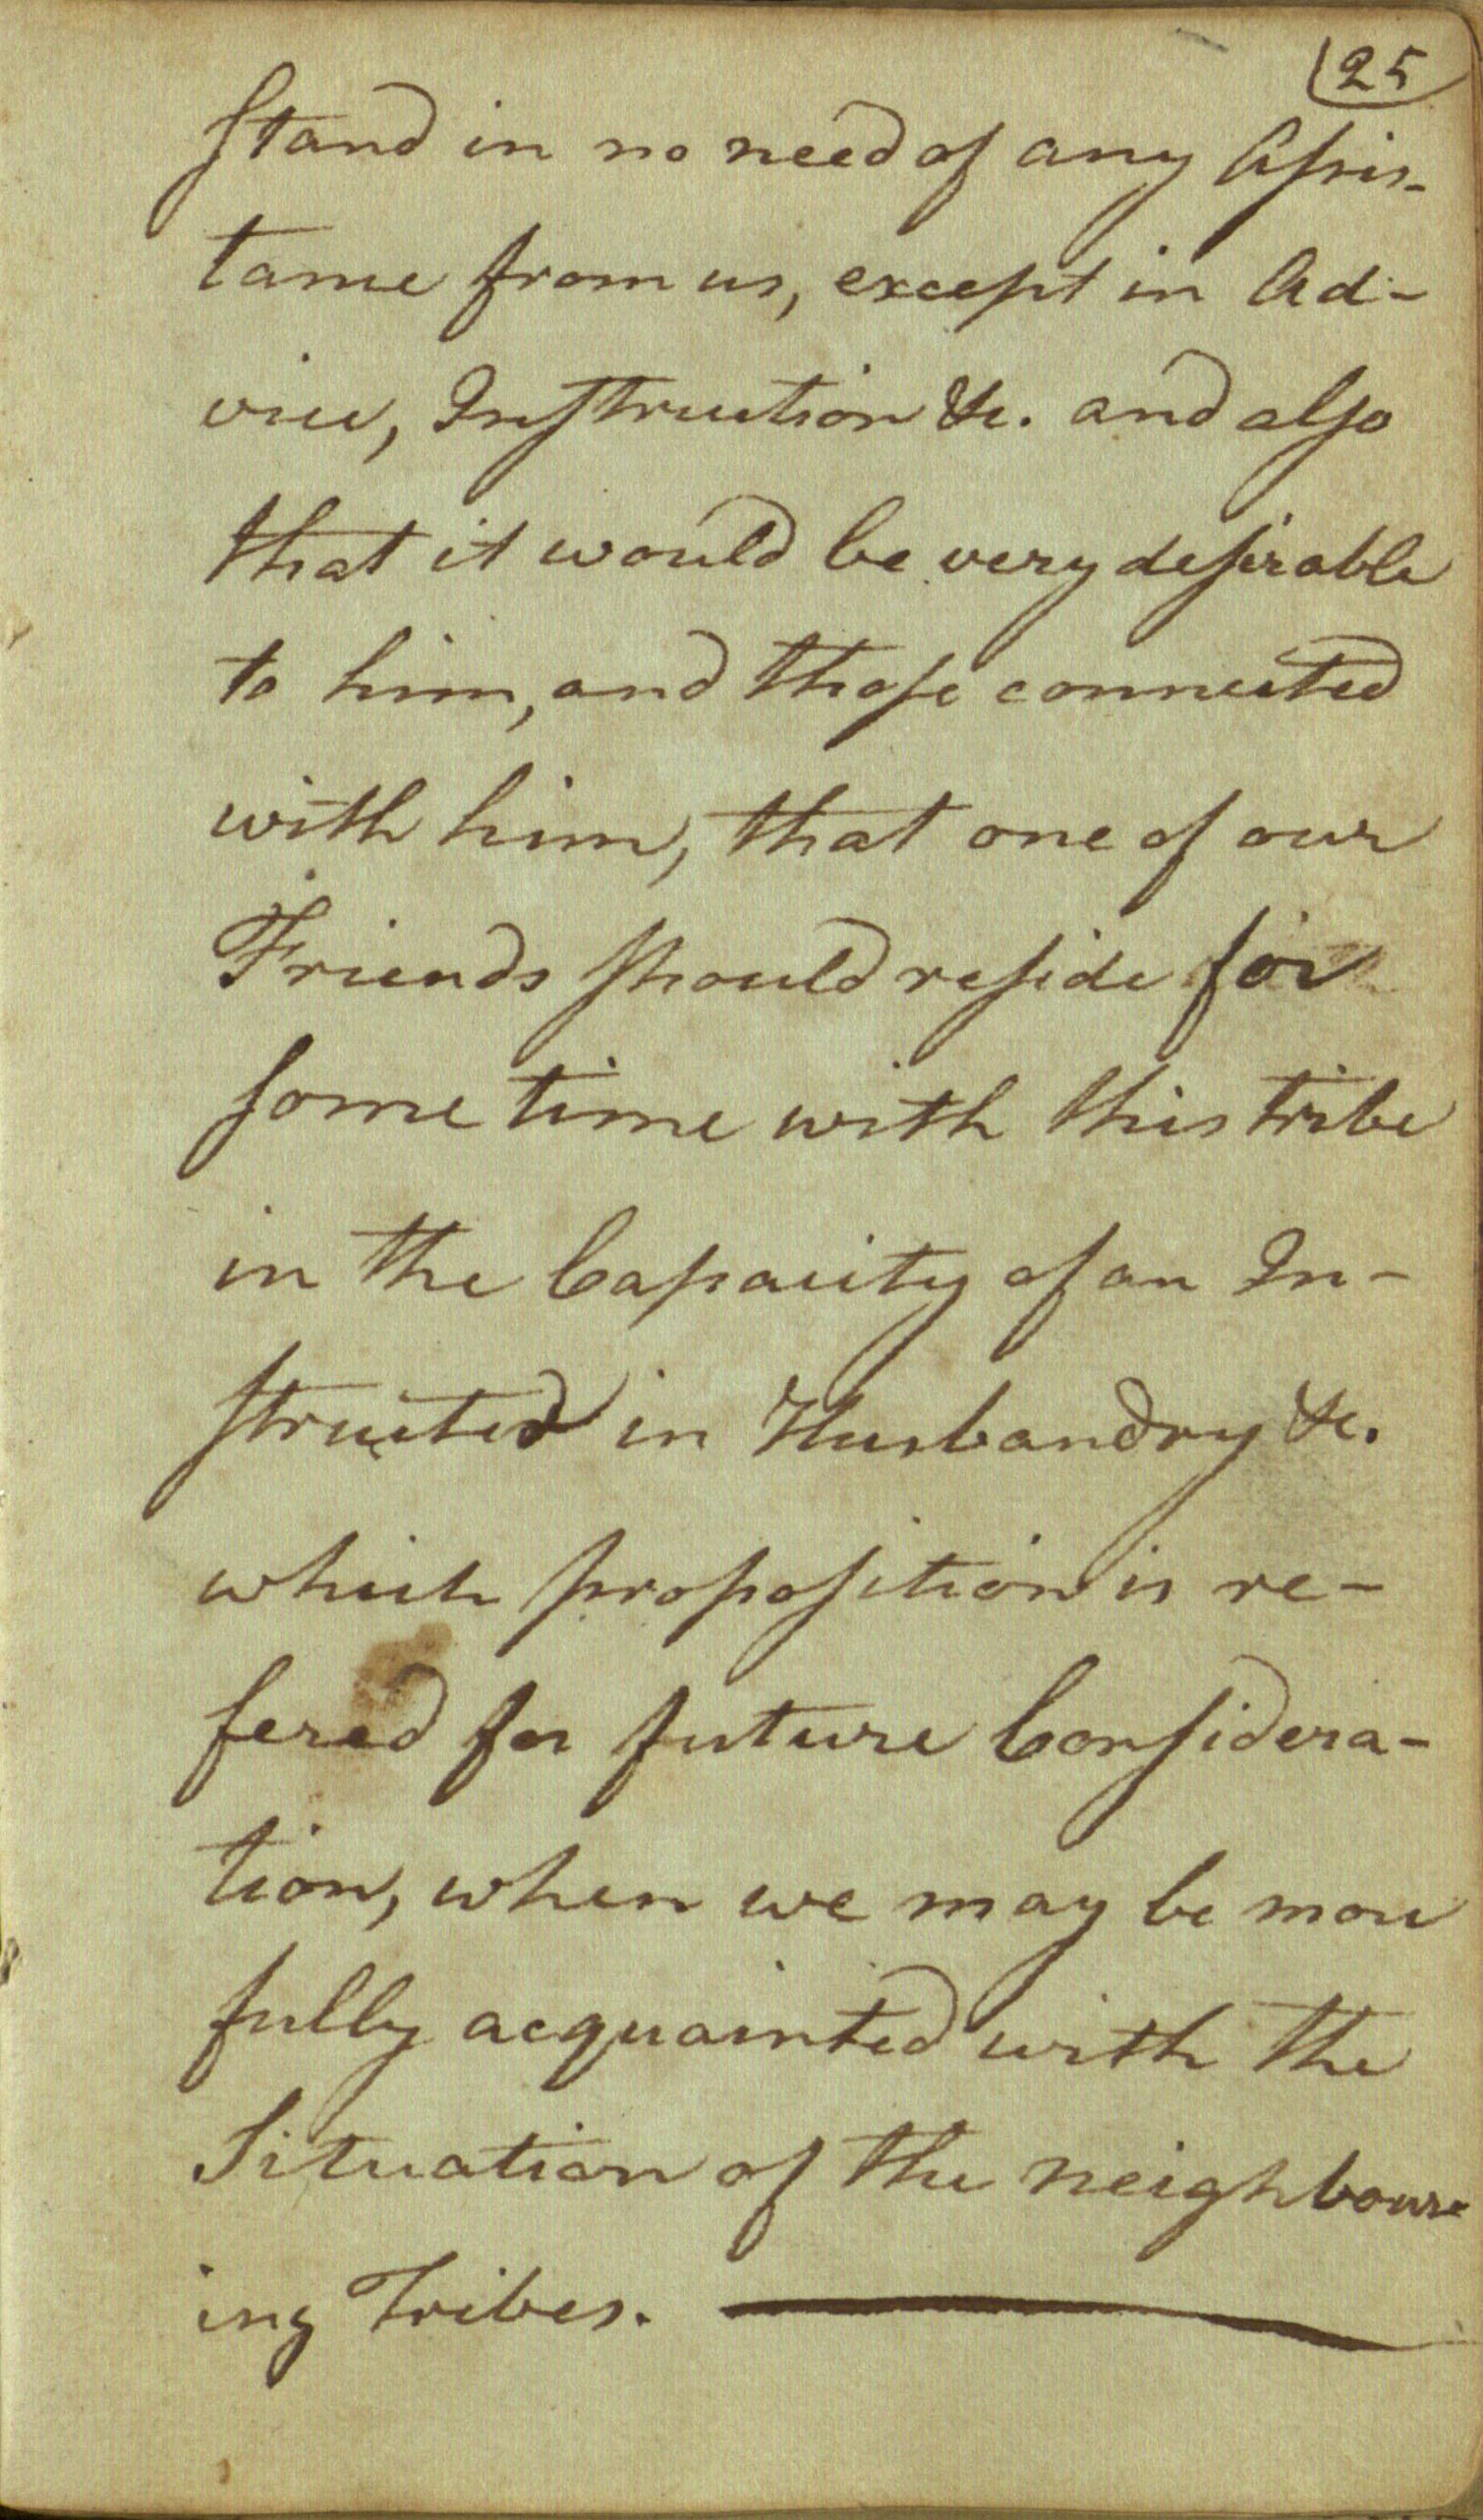 25
stand in no need of any Assis-
tance from us, except in Ad-
vice, Instruction &c. and also
that it would be very desirable
to him, and those connected
with him, that one of our
Friends should reside for
some time with this tribe
in the Capacity of an In-
structed in Husbandry &c.
which proposition is re-
fered for future Considera-
tion, when we may be more
fully acquainted with the
Situation of the neighbour-
ing Tribes.